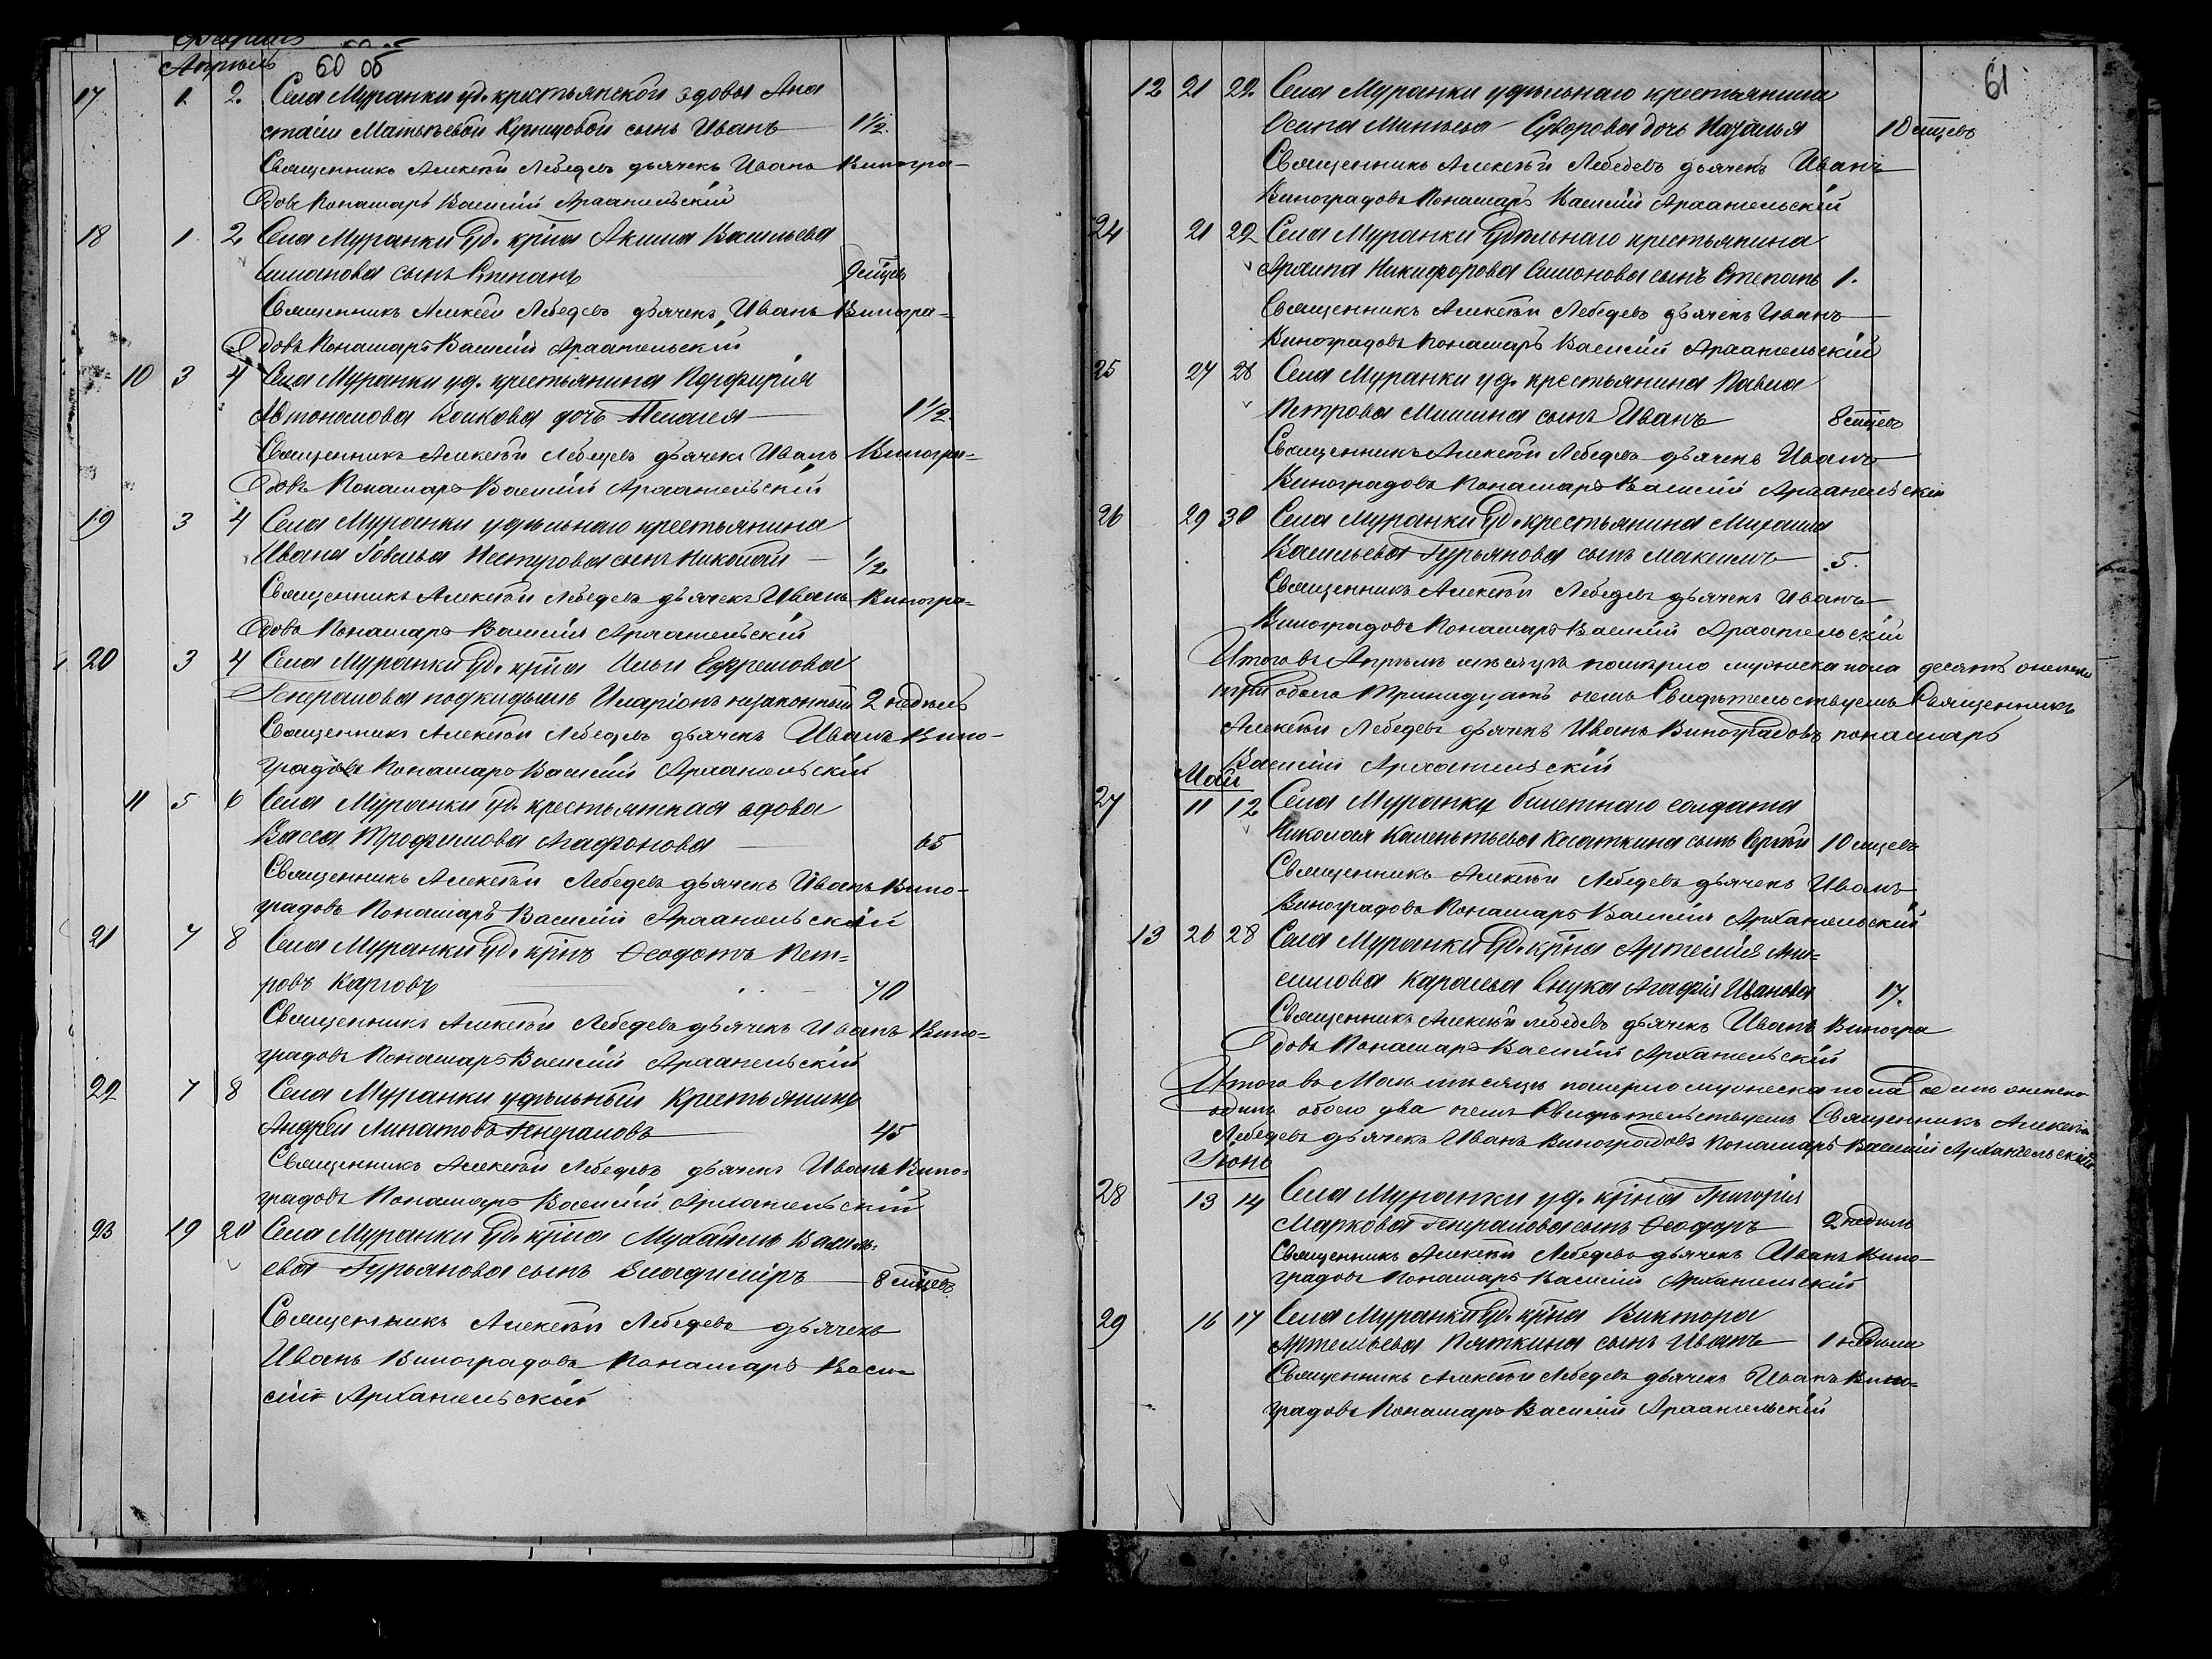 Апрѣль 60 об
17 1 2. Села Муранки уд. крестьянской вдовы Ана
стасіи Матвѣевой Кузнецовой сынъ Иванъ 1½.
Священникъ Алексѣй Лебедевъ дьячекъ Иванъ Виногра-
довъ Пономарь Василій Архангельскій
18 1 2 Села Муранки Уд. крїна Акима Васильева
Симонова сынъ Степанъ 9 мцевъ
Священникъ Алексѣй Лебедевъ дьячекъ Иванъ Виногра-
довъ Пономарь Василій Архангельскій
10 3 4 Села Муранки уд. крестьянина Порфирія
Автономова Волкова дочь Пелагея 1½.
Священникъ Алексѣй Лебедевъ дьячекъ Иванъ Виногра-
довъ Пономарь Василій Архангельскій
19 3 4 Села Муранки удѣльнаго крестьянина
Ивана сынъ Николай ½
Священникъ Алексѣй Лебедевъ дьячекъ Иванъ Виногра-
довъ Пономарь Василій Архангельскій
20 3 4 Села Муранки Уд. крїна Ильи Ефремова
Генералова подкидышь Иларіонъ незаконный 2 недѣль
Священникъ Алексѣй Лебедевъ дьячекъ Иванъ Вино-
градовъ Пономарь Василій Архангельскій
11 5 6 Села Муранки уд. крестьянская вдова
Васса Трофимова Агафонова 65
Священникъ Алексѣй Лебедевъ дьячекъ Иванъ Вино-
градовъ Пономарь Василій Архангельскій
21 7 8 Села Муранки Уд. крїнъ Ѳеодотъ Пет-
ровъ Карповъ 70
Священникъ Алексѣй Лебедевъ дьячекъ Иванъ Вино-
градовъ Пономарь Василій Архангельскій
22 7 8 Села Муранки удѣльный Крестьянинъ
Андрей Липатовъ Генераловъ 45
Священникъ Алексѣй Лебедевъ дьячекъ Иванъ Вино-
градовъ Пономарь Василій Архангельскій
23 19 20 Села Муранки Уд. крїна Михаила Василь-
ева Гурьянова сынъ Владиміръ 8 мцевъ
Священникъ Алексѣй Лебедевъ дьячекъ
Иванъ Виноградовъ Пономарь Васи-
лій Архангельскій
61
12 21 22. Села Муранки удѣльнаго крестьянина
Осипа Суворова дочь Наталья 10 мцевъ
Священникъ Алексѣй Лебедевъ дьячекъ Иванъ
Виноградовъ Пономарь Василій Архангельскій
24 21 22 Села Муранки Удѣльнаго крестьянина
Архипа Никифорова Симонова сынъ Степанъ 1.
Священникъ Алексѣй Лебедевъ дьячекъ Иванъ
Виноградовъ Пономарь Василій Архангельскій
25 27 28 Села Муранки уд. крестьянина Павла
Петрова Мишина сынъ Иванъ 8 мцевъ
Священникъ Алексѣй Лебедевъ дьячекъ Иванъ
Виноградовъ Пономарь Василій Архангельскій
26 29 30 Села Муранки Уд. крестьянина Михаила
Васильева Гурьянова сынъ Максимъ .5.
Священникъ Алексѣй Лебедевъ дьячекъ Иванъ
Виноградовъ Пономарь Василій Архангельскій
Итого въ Апрѣлѣ мѣсяцѣ померло мужеска пола десять женска
три обоего Тринадцать о чемъ Свидѣтельствуемъ Священникъ
Алексѣй Лебедевъ дьячекъ Иванъ Виноградовъ пономарь
Василій Архангельскій
Май
27 11 12 Села Муранки билетнаго солдата
Николая Касаткина сынъ Сергѣй 10 мцевъ
Священникъ Алексѣй Лебедевъ дьячекъ Иванъ
Виноградовъ Пономарь Василій Архангельскій
13 26 28 Села Муранки Уд. крїна Артемія Ани-
симова внука Агафія Иванова 17.
Священникъ Алексѣй Лебедевъ дьячекъ Иванъ Виногра
довъ Пономарь Василій Архангельскій
Итого въ Маѣ мѣсяцѣ померло мужеска пола одинъ женска
одинъ обоего два о чемъ Свидѣтельствуемъ Священникъ Алексѣй
Лебедевъ дьячекъ Иванъ Виноградовъ Пономарь Василій Архангельскій
Іюнь
28 13 14 Села Муранки уд. крїна Григорія
Маркова Генералова сынъ Ѳеодоръ 2 недѣль
Священникъ Алексѣй Лебедевъ дьячекъ Иванъ Вино-
градовъ Пономарь Василій Архангельскій
29 16 17 Села Муранки Уд. крїна Виктора
Артемьева Пяткина сынъ Иванъ 1 недѣли
Священникъ Алексѣй Лебедевъ дьячекъ Иванъ Вино-
градовъ Пономарь Василій Архангельскій